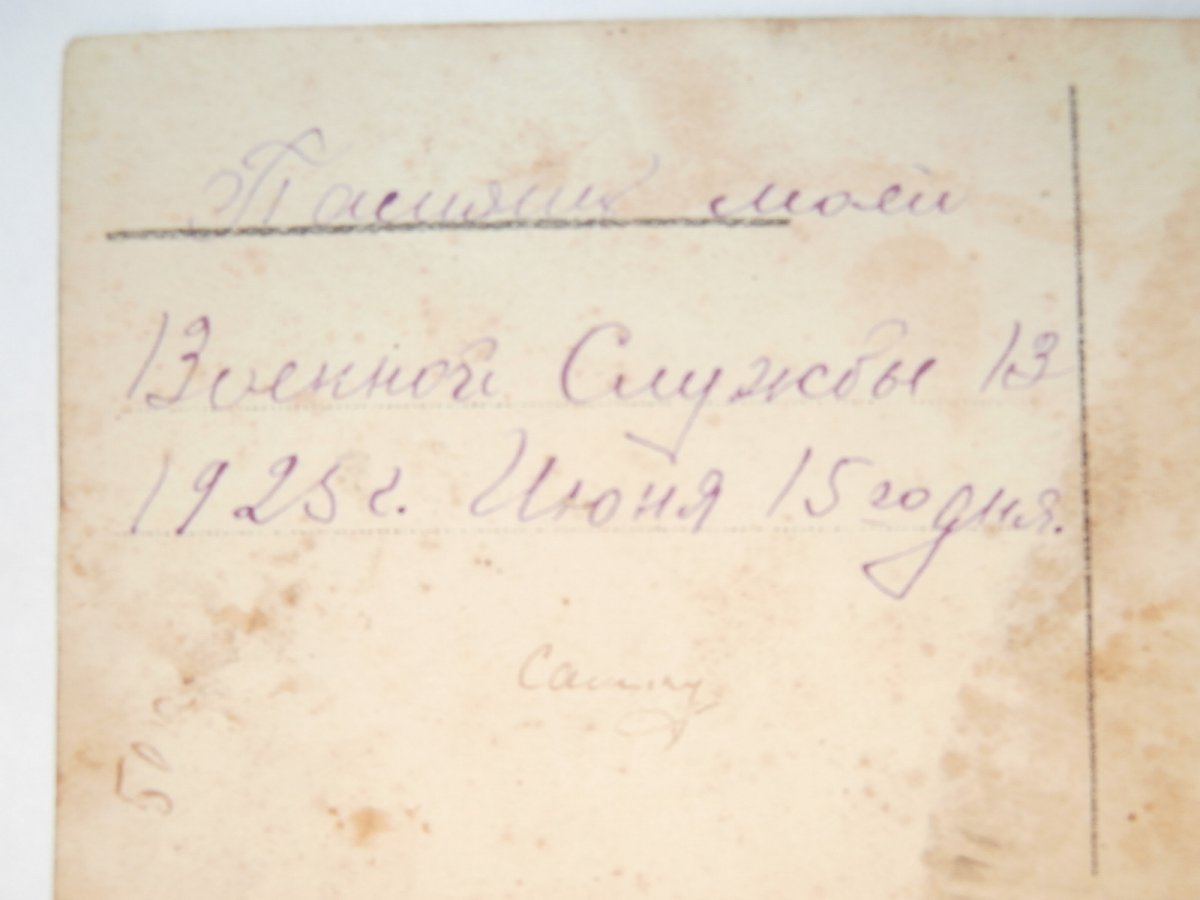 Память моей
Военной Службы В
1925 г. Июня 15 го дня.